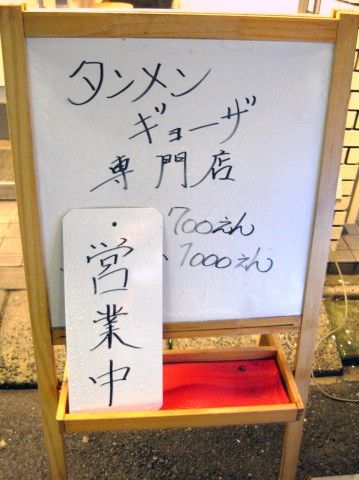 タンメン
ギョーザ
専門店
700えん
1000えん
営業中